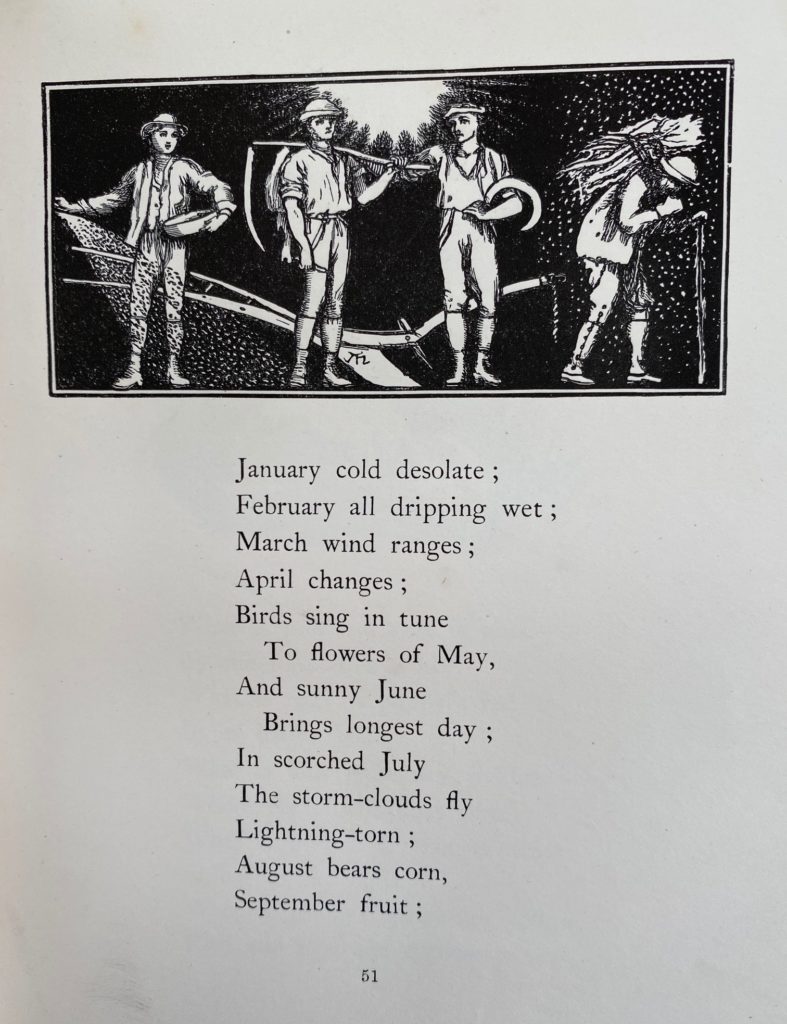 January cold desolate ;
February all dripping wet ;
March wind ranges ;
April changes ;
Birds sing in tune
To flowers of May,
And sunny June
Brings longest day ;
In scorched July
The storm-clouds fly
Lightning-torn ;
August bears corn,
September fruit ;
51